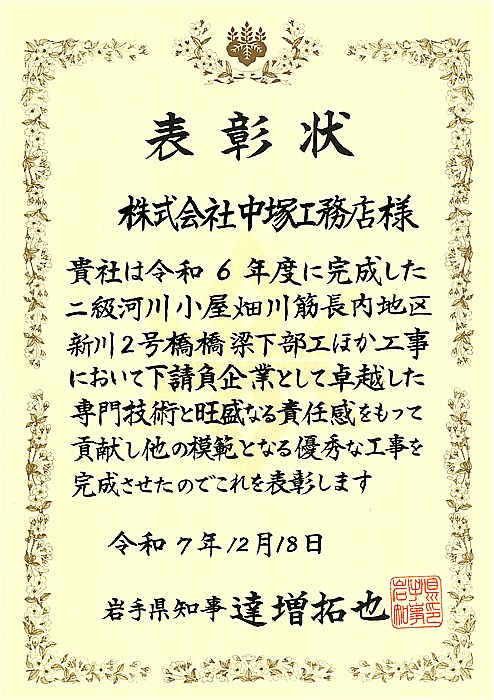 表彰状
株式会社中塚工務店様
貴社は令和6年度に完成した
二級河川小屋畑川筋長内地区
新川2号橋橋梁下部工ほか工事
において下請負企業として卓越した
専門技術と旺盛なる責任感をもって
貢献し他の模範となる優秀な工事を
完成させたのでこれを表彰します
令和7年12月18日
岩手県知事 達増拓也